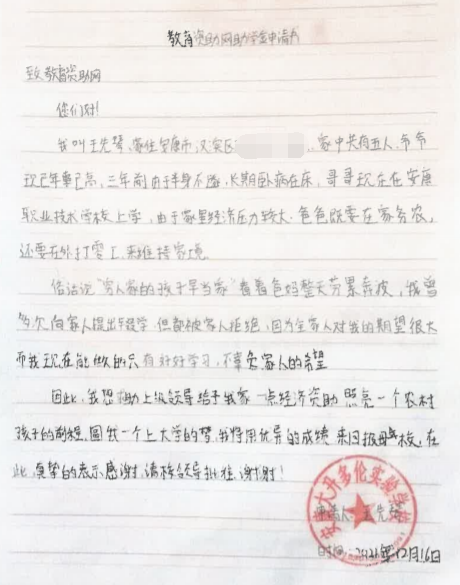 教育资助网助学金申请书
致教育资助网
您们好!
我叫王先琴,家住安康市,汉滨区 家中共有五人,爷爷
现已年事已高,三年前由于半身不遂,长期卧病在床,哥哥现在在安康
职业技术学校上学,由于家里经济压力较大,爸爸既要在家务农,
还要在外打零工,来维持家境.
俗话说"穷人家的孩子早当家"看着爸妈整天劳累奔波,我曾
多次向家人提出辍学但都被家人拒绝,因为全家人对我的期望很大
而我现在能做的只有好好学习,不辜负家人的希望
因此,我想 上级领导给予我家一点经济资助照亮一个农村
孩子的前程,圆我一个上大学的梦,我将用优异的成绩来回报母校,在
此真挚的表示感谢,请校领导批准,谢谢!
申请人: 王先琴
大丹多伦实验学校
时间: 12月16日